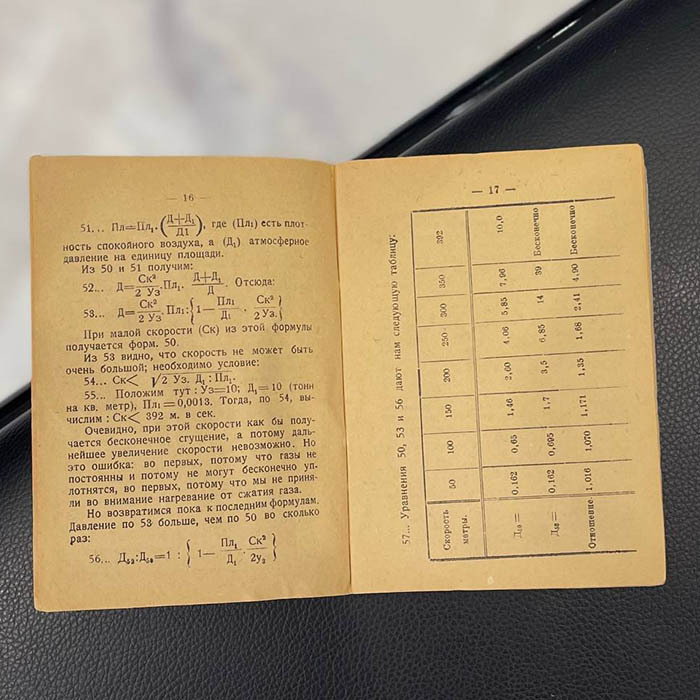 — 16 —
51... Пл=Пл₁.(Д+Д₁/Д1), где (Пл₁) есть плот-
ность спокойного воздуха, а (Д₁) атмосферное
давление на единицу площади.
Из 50 и 51 получим:
52... Д=Ск²/2 Уз.Пл₁. Д+Д₁/Д. Отсюда:
53... Д=Ск²/2 Уз.Пл₁:{1—Пл₁/Д₁ · Ск²/2 Уз.}
При малой скорости (Ск) из этой формулы
получается форм. 50.
Из 53 видно, что скорость не может быть
очень большой; необходимо условие:
54... Ск< √2 Уз. Д₁:Пл₁.
55... Положим тут: Уз=10; Д₁=10 (тонн
на кв. метр), Пл₁=0,0013. Тогда, по 54, вы-
числим: Ск< 392 м. в сек.
Очевидно, при этой скорости как бы полу-
чается бесконечное сгущение, а потому даль-
нейшее увеличение скорости невозможно. Но
это ошибка: во первых, потому что газы не
постоянны и потому не могут бесконечно уп-
лотнятся, во первых, потому что мы не приня-
ли во внимание нагревание от сжатия газа.
Но возвратимся пока к последним формулам.
Давление по 53 больше, чем по 50 во сколько
раз:
56... Д₅₃:Д₅₀=1 : {1— Пл₁/Д₁ · Ск²/2уз}
— 17 —
57... Уравнения 50, 53 и 56 дают нам следующую таблицу:
Скорость метры. 50 100 150 200 250 300 350 392
Д₅₀= 0,162 0,65 1,46 2,60 4,06 5,85 7,96 10,0
Д₅₃= 0,162 0,695 1,7 3,5 6,85 14 39 Бесконечно
Отношение 1,016 1,070 1,171 1,35 1,68 2,41 4,90 Бесконечно